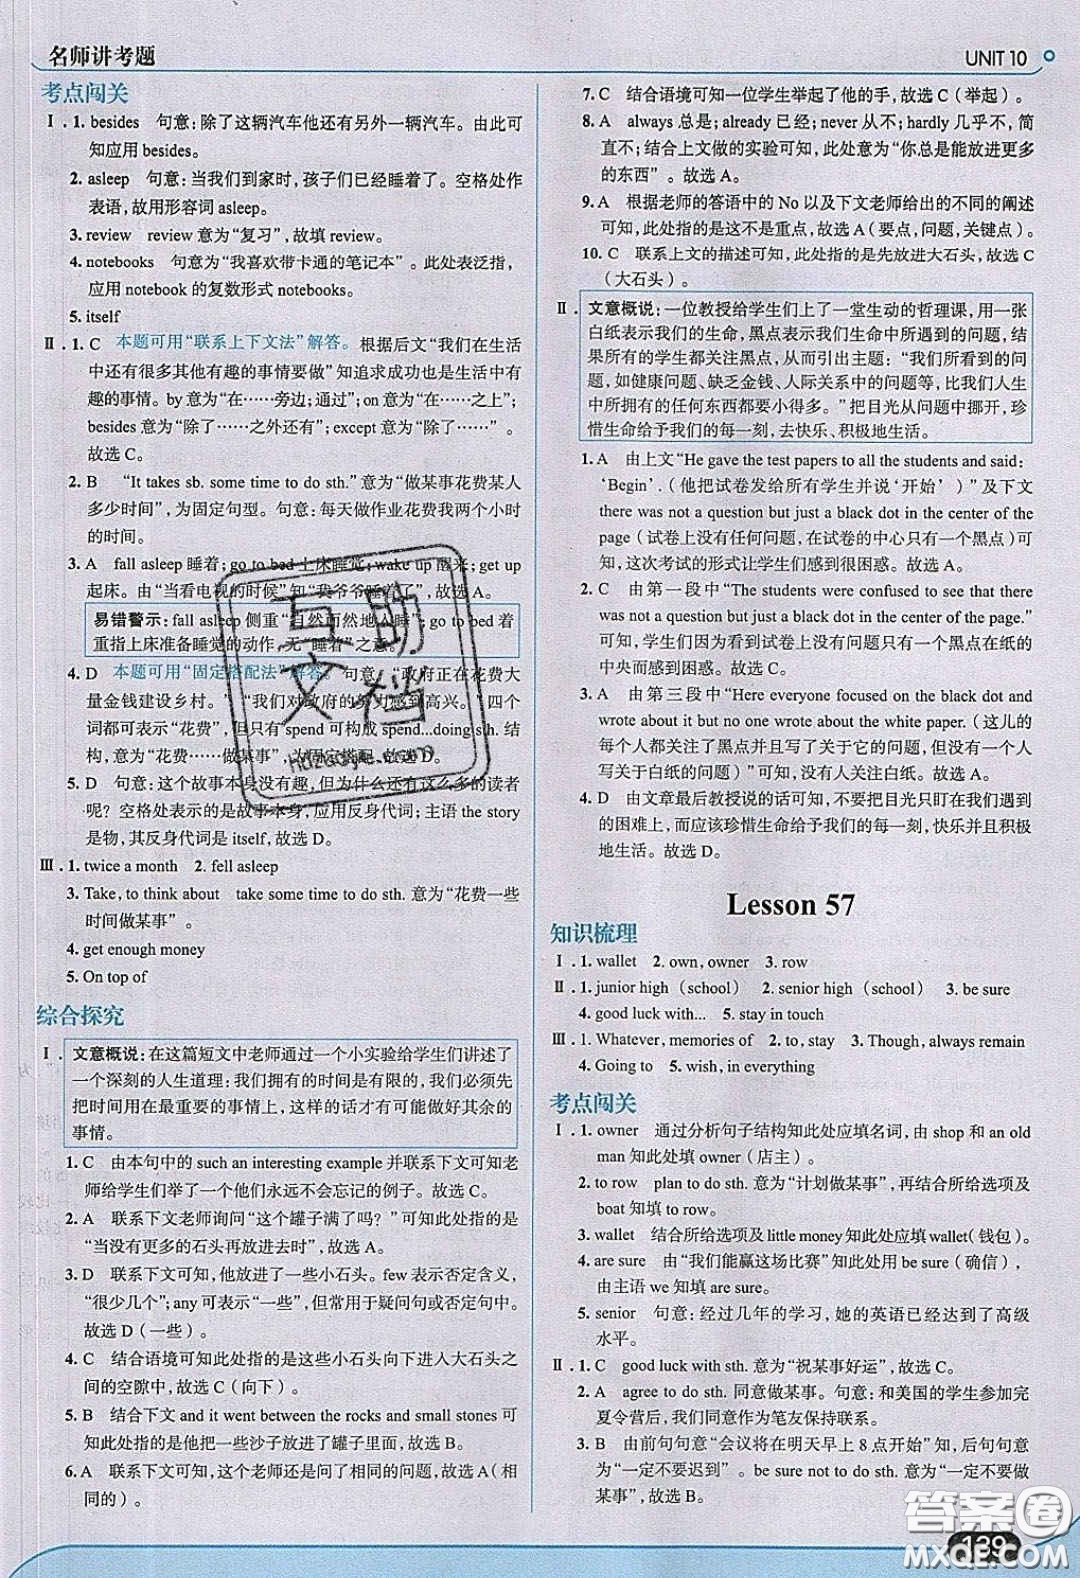 名师讲考题
UNIT 10
考点闯关
Ⅰ. 1. besides 句意:除了这辆汽车他还有另外一辆汽车。由此可
知应用 besides。
2. asleep 句意:当我们到家时,孩子们已经睡着了。空格处作
表语,故用形容词 asleep。
3. review review 意为“复习”,故填 review。
4. notebooks 句意为“我喜欢带卡通的笔记本”。此处表泛指,
应用 notebook 的复数形式 notebooks。
5. itself
Ⅱ. 1. C 本题可用“联系上下文法”解答。根据后文“我们在生活
中还有很多其他有趣的事情要做”知追求成功也是件有
趣的事情。by 意为“在……旁边;通过”;on 意为“在……之上”;
besides 意为“除了……之外还有”;except 意为“除了……”。
故选 C。
2. B “It takes sb. some time to do sth.”意为“做某事花费某人
多少时间”,为固定句型。句意:每天做作业花费我两个小时
的时间。
3. A fall asleep 睡着;go to bed 上床睡觉;wake up 醒来;get up
起床。由“当看电视的时候”知“我爷爷睡着了”,故选 A。
易错警示:fall asleep 侧重“自然而然地入睡”;go to bed 着
重指上床准备睡觉的动作,无“睡着”之意。
4. D 本题可用“固定搭配法”解答。句意:“政府正在花费大
量金钱建设乡村。”“我们对政府的努力感到高兴。”四个
词都可表示“花费”,但只有 spend 可构成 spend...doing sth. 结
构,意为“花费……做某事”,为固定搭配,故选 D。
5. D 句意:这个故事本身没有趣,但为什么还有这么多的读者
呢?空格处表示的是故事本身,应用反身代词;主语 the story
是物,其反身代词是 itself,故选 D。
Ⅲ. 1. twice a month 2. fell asleep
3. Take, to think about take some time to do sth. 意为“花费一些
时间做某事”。
4. get enough money
5. On top of
综合探究
Ⅰ. 文意概说:在这篇短文中老师通过一个小实验给学生们讲述了
一个深刻的人生道理:我们拥有的时间是有限的,我们必须先
把时间用在最重要的事情上,这样的话才有可能做好其余的
事情。
1. C 由本句中的 such an interesting example 并联系下文可知老
师给学生们举了一个他们永远不会忘记的例子。故选 C。
2. A 联系下文老师询问“这个罐子满了吗?”可知此处指的是
“当没有更多的石头再放进去时”,故选 A。
3. D 联系下文可知,他放进了一些小石头。few 表示否定含义,
“很少几个”;any 可表示“一些”,但常用于疑问句或否定句中。
故选 D(一些)。
4. C 结合语境可知此处指的是这些小石头向下进人大石头之
间的空隙中,故选 C(向下)。
5. B 结合下文 and it went between the rocks and small stones 可
知此处指的是他把一些沙子放进了罐子里面,故选 B。
6. A 联系下文可知,这个老师还是问了相同的问题,故选 A(相
同的)。
7. C 结合语境可知一位学生举起了他的手,故选 C(举起)。
8. A always 总是;already 已经;never 从不;hardly 几乎不,简
直不;结合上文做的实验可知,此处意为“你总是能放进更多
的东西”。故选 A。
9. A 根据老师的答语中的 No 以及下文老师给出的不同的阐述
可知,此处指的是这不是重点,故选 A(要点,问题,关键点)。
10. C 联系上文的描述可知,此处指的是先放进大石头,故选 C
(大石头)。
Ⅱ. 文意概说:一位教授给学生们上了一堂生动的哲理课,用一张
白纸表示我们的生命,黑点表示我们生命中所遇到的问题,结
果所有的学生都关注黑点,从而引出主题:“我们所看到的问
题,如健康问题、缺乏金钱、人际关系中的问题等,比我们人生
中所拥有的任何东西都要小得多。”把目光从问题中挪开,珍
惜生命给予我们的每一刻,去快乐、积极地生活。
1. A 由上文“He gave the test papers to all the students and said:
‘Begin’.(他把试卷发给所有学生并说‘开始’)”及下文
there was not a question but just a black dot in the center of the
page(试卷上没有任何问题,在试卷的中心只有一个黑点)可
知,这次考试的形式让学生们感到很困惑。故选 A。
2. C 由第一段中“The students were confused to see that there
was not a question but just a black dot in the center of the page.”
可知,学生们因为看到试卷上没有问题只有一个黑点在纸的
中央而感到困惑。故选 C。
3. A 由第三段中“Here everyone focused on the black dot and
wrote about it but no one wrote about the white paper.(这儿的
每个人都关注了黑点并且写了关于它的问题,但没有一个人
写关于白纸的问题)”可知,没有人关注白纸。故选 A。
4. D 由文章最后教授说的话可知,不要把目光只盯在我们遇到
的困难上,而应该珍惜生命给予我们的每一刻,快乐并且积极
地生活。故选 D。
Lesson 57
知识梳理
Ⅰ. 1. wallet 2. own, owner 3. row
Ⅱ. 1. junior high(school) 2. senior high(school) 3. be sure
4. good luck with... 5. stay in touch
Ⅲ. 1. Whatever, memories of 2. to, stay 3. Though, always remain
4. Going to 5. wish, in everything
考点闯关
Ⅰ. 1. owner 通过分析句子结构知此处应填名词,由 shop 和 an old
man 知此处填 owner(店主)。
2. to row plan to do sth. 意为“计划做某事”,再结合所给选项及
boat 知填 to row。
3. wallet 结合所给选项及 little money 知此处应填 wallet(钱包)。
4. are sure 由“我们能赢这场比赛”知此处用 be sure(确信),
由主语 we 知填 are sure。
5. senior 句意:经过几年的学习,她的英语已经达到了高级
水平。
Ⅱ. 1. C good luck with sth. 意为“祝某事好运”,故选 C。
2. A agree to do sth. 同意做某事。句意:和美国的学生参加完
夏令营后,我们同意作为笔友保持联系。
3. B 由前句句意“会议将在明天早上 8 点开始”知,后句句意
为“一定不要迟到”。be sure not to do sth. 意为“一定不要做
某事”,故选 B。
互助
文档
答案圈
139
MXQE.COM